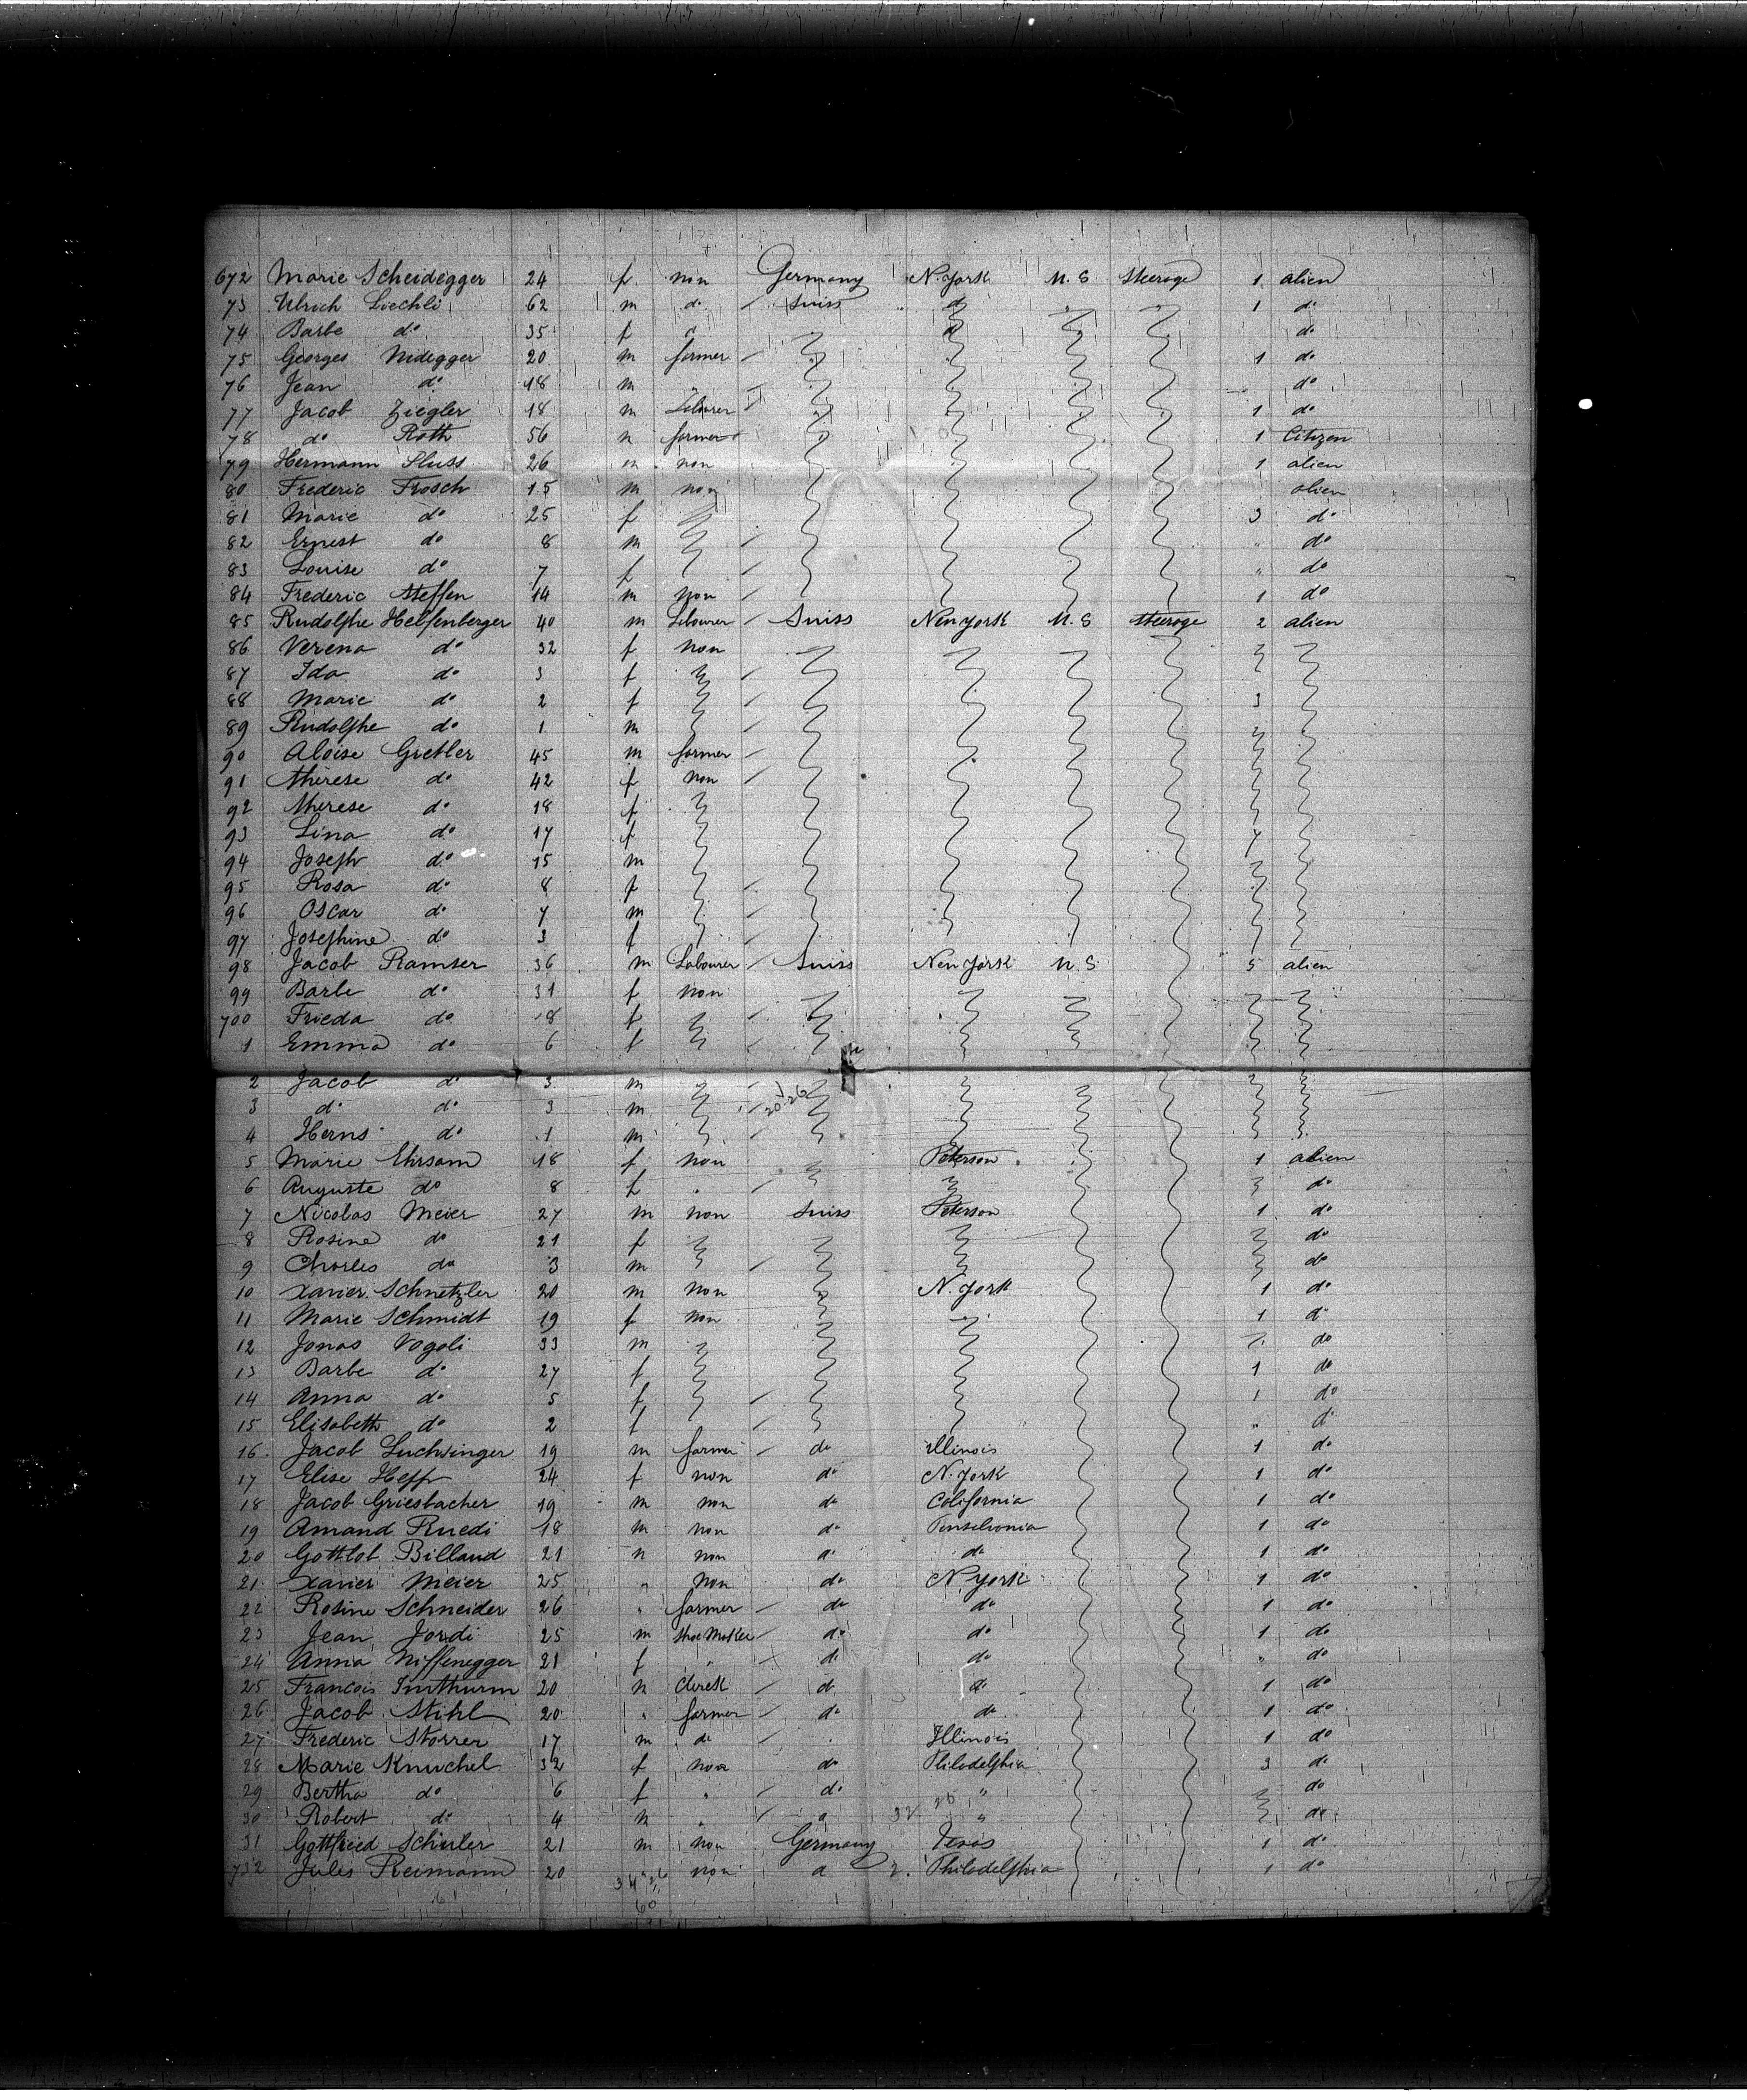 672 Marie Scheidegger 24 f non Germany N. York U. S Steerage 1 alien
73 Ulrich Liechli 62 m do Suiss do 1 do
74 Barbe do 35 f do
75 Georges Nidegger 20 m farmer 1 do
76 Jean do 18 m do
77 Jacob Ziegler 18 m Labourer 1 do
78 do Roth 56 m farmer 1 Citizen
79 Hermann Sluss 26 m non 1 alien
80 Frederic Frosch 15 m non alien
81 Marie do 25 f 3 do
82 Ernest do 8 m " do
83 Louise do 7 f " do
84 Frederic Steffen 14 m non 1 do
85 Rudolphe Helfenberger 40 m Labourer Suiss New york U. S Steerage 2 alien
86 Verena do 32 f non
87 Ida do 3 f
88 Marie do 2 f 3
89 Rudolphe do 1 m
90 Aloise Gretler 45 m farmer
91 thérese do 42 f non
92 therese do 18 f
93 Lina do 17 f 7
94 Joseph do 15 m
95 Rosa do 8 f
96 Oscar do 7 m
97 Josephine do 3 f
98 Jacob Ramser 36 m Labourer Suiss New York U. S 5 alien
99 Barbe do 31 f non
700 Frieda do 18 f
1 Emma do 6 f
2 Jacob do 3 m
3 do do 3 m
4 Herns do 1 m
5 Marie Ehrsam 18 f non Peterson 1 alien
6 Auguste do 8 f " do
7 Nicolas Meier 27 m non Suiss Peterson 1 do
8 Rosine do 21 f do
9 Charles do 3 m do
10 Xavier Schnetzler 20 m non N. York 1 do
11 Marie Schmidt 19 f non 1 do
12 Jonas Vogoli 33 m do
13 Barbe do 27 f 1 do
14 Anna do 5 f 1 do
15 Elisabeth do 2 f " do
16 Jacob Luchsinger 19 m farmer do illinois 1 do
17 Elise Hepp 24 f non do N. York 1 do
18 Jacob Griesbacher 19 m non do California 1 do
19 Amand Ruedi 18 m non do Penselvonia 1 do
20 Gottlob Billaud 21 m non do do 1 do
21 Xavier Meier 25 " non do N. York 1 do
22 Rosine Schneider 26 " farmer do do 1 do
23 Jean Jordi 25 m Shoe Maker do do 1 do
24 Anna Niffenegger 21 f " do do " do
25 Francois Imthurm 20 m Clerck do do 1 do
26 Jacob Stihl 20 " farmer do do 1 do
27 Frederic Storrer 17 m do Illinois 1 do
28 Marie Knuchel 32 f non do Philadelphia 3 do
29 Bertha do 6 f " do " do
30 Robert do 4 m " do " do
31 Gottfried Schuler 21 m non Germany Texas 1 do
732 Jules Reimann 20 non do Philadelphia 1 do